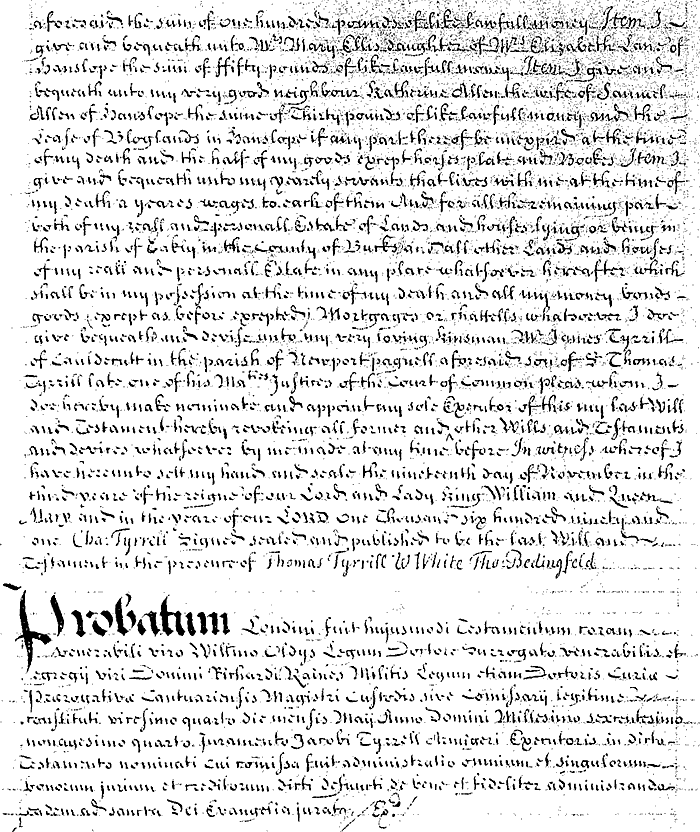 aforesaid the sum of one hundred pounds of like lawfull money Item I
give and bequeath unto Mrs Mary Ellis daughter of Mrs Elizabeth Lane of
Hanslope the sum of ffifty pounds of like lawfull money Item I give and
bequeath unto my very good neighbour Katherine Allen the wife of Samuel
Allen of Hanslope the sume of Thirty pounds of like lawfull money and the
Lease of Bloglands in Hanslope if any part thereof be unexpird at the time
of my death and the half of my goods except horses plate and Bookes Item I
give and bequeath unto my yearely servants that lives with me at the time of
my death a yeares wages to each of them And for all the remaining part
both of my reall and personall Estate of Lands and houses lying or being in
the parish of in the County of Bucks and all other Lands and houses
of my reall and personall Estate in any place whatsoever hereafter which
shall be in my possession at the time of my death and all my money bonds
goods (except as before excepted) Mortgages or chattells whatsoever I doe
give bequeath and devise unto my very loving kinsman Mr James Tyrrill
of Cauldecutt in the parish of Newport pagnell aforesaid son of Sr Thomas
Tyrrill late one of his Maties Justices of the Court of Common pleas whom I
doe hereby make nominate and appoint my sole Executor of this my last Will
and Testament hereby revokeing all former and other Wills and Testaments
and devices whatsoever by me made at any time before In witness whereof I
have hereunto sett my hand and seale the nineteenth day of November in the
third yeare of the reigne of our Lord and Lady King William and Queen
Mary and in the yeare of our LORD One Thousand six hundred ninety and
one Cha: Tyrrell Signed sealed and published to be the last Will and
Testament in the presence of Thomas Tyrrill W White Tho: Bedingfeld
Probatum Londini fuit hujusmodi Testamentum coram
venerabili viro Willmo Oldys Legum Doctore Surrogato venerabilis et
egregij viri Domini Richardi Raines Militis Legum etiam Doctoris Curiæ
Prærogativæ Cantuariensis Magistri Custodis sive Comissarij legitime
constituti vicesimo quarto die mensis Maij Anno Domini Millesimo sexcentesimo
nonagesimo quarto Juramento Jacobi Tyrrell Armigeri Executoris in dicto
Testamento nominati cui comissa fuit administratio omnium et singulorum
bonorum jurium et creditorum dicti defuncti de bene et fideliter administrando
eadem ad sancta Dei Evangelia jurat Exd